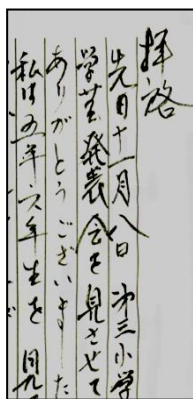 拝啓
先日十一月八日 第三小学
学芸発表会を見させて
ありがとうございました
私は五年六年生を 見